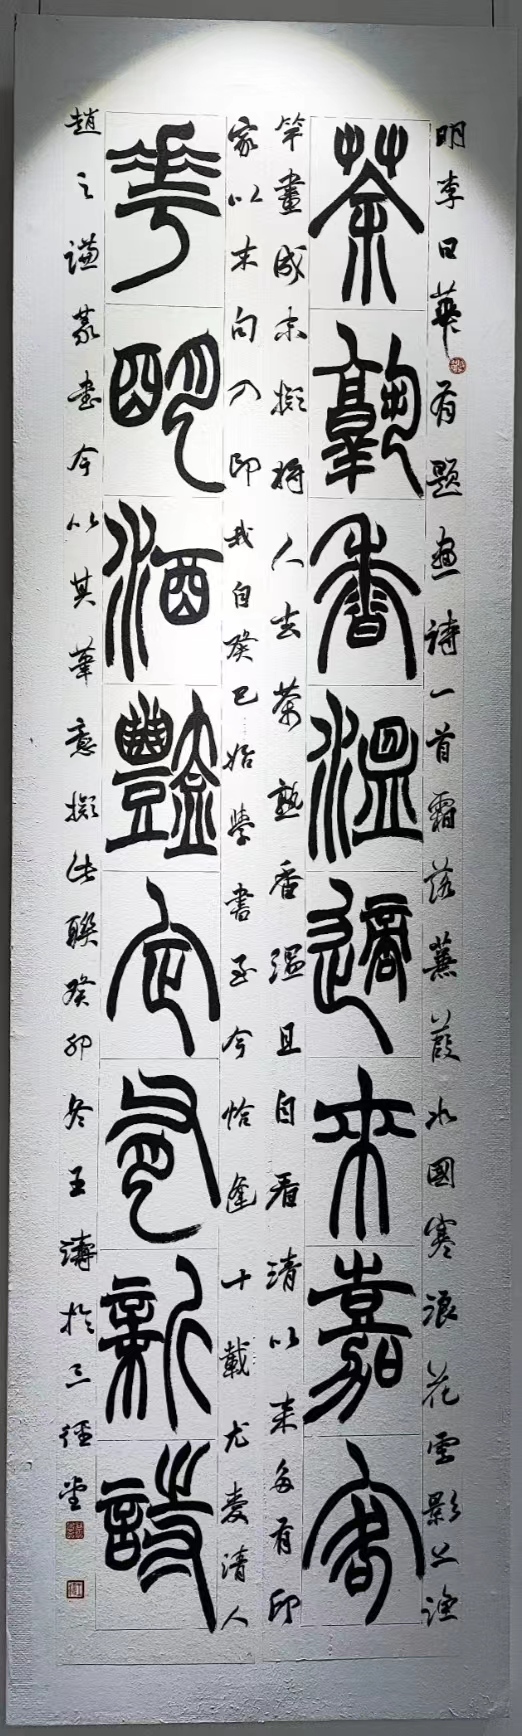 明李日華有題畫詩一首霜落蒹葭水國寒浪花雲影上漁
茶熟香溫適來嘉客
竿畫成未擬將人去茶熟香溫且自看清以來多有印
家以末句入印我自癸巳始學書至今恰逢十載尤愛清人
華明酒豔定有新詩
趙之謙篆書今以其筆意擬此聯癸卯冬王濤於三徑堂